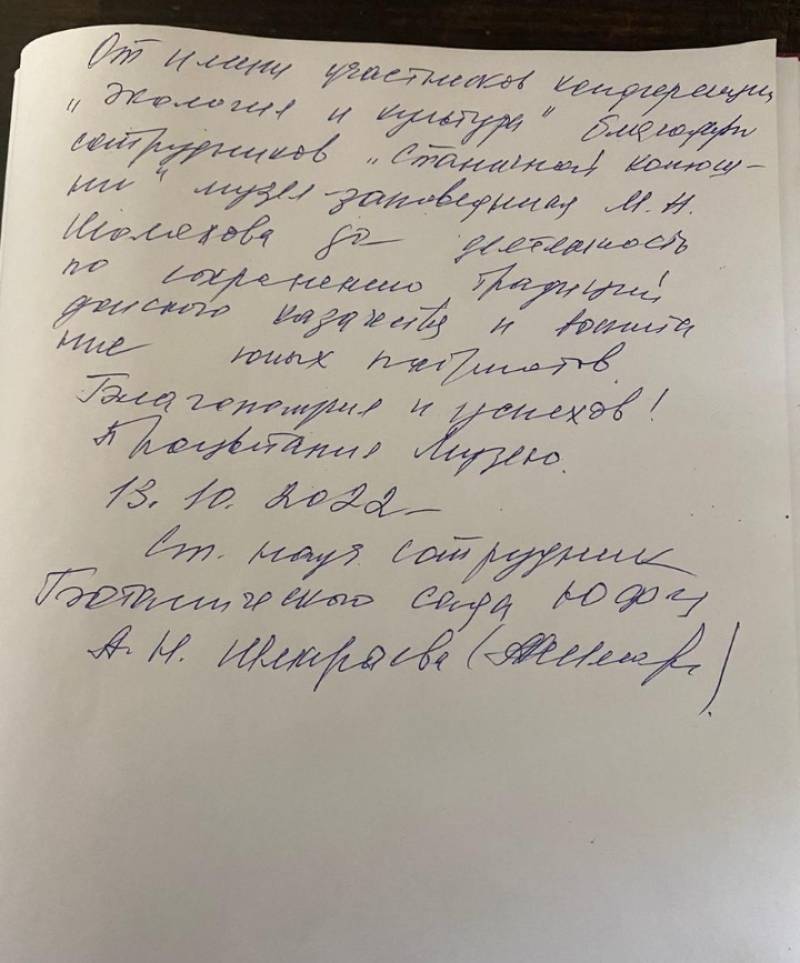 От имени участников конференции
„Экология и культура" благодарю
сотрудников „Станичной конюш-
ни" музея-заповедника М. А.
Шолохова за деятельность
по сохранению традиций
донского казачества и воспита
ние юных патриотов.
Благополучия и успехов!
Процветания Музею.
13. 10. 2022
Ст. науч сотрудник
Ботанического сада ЮФУ
А. Н.